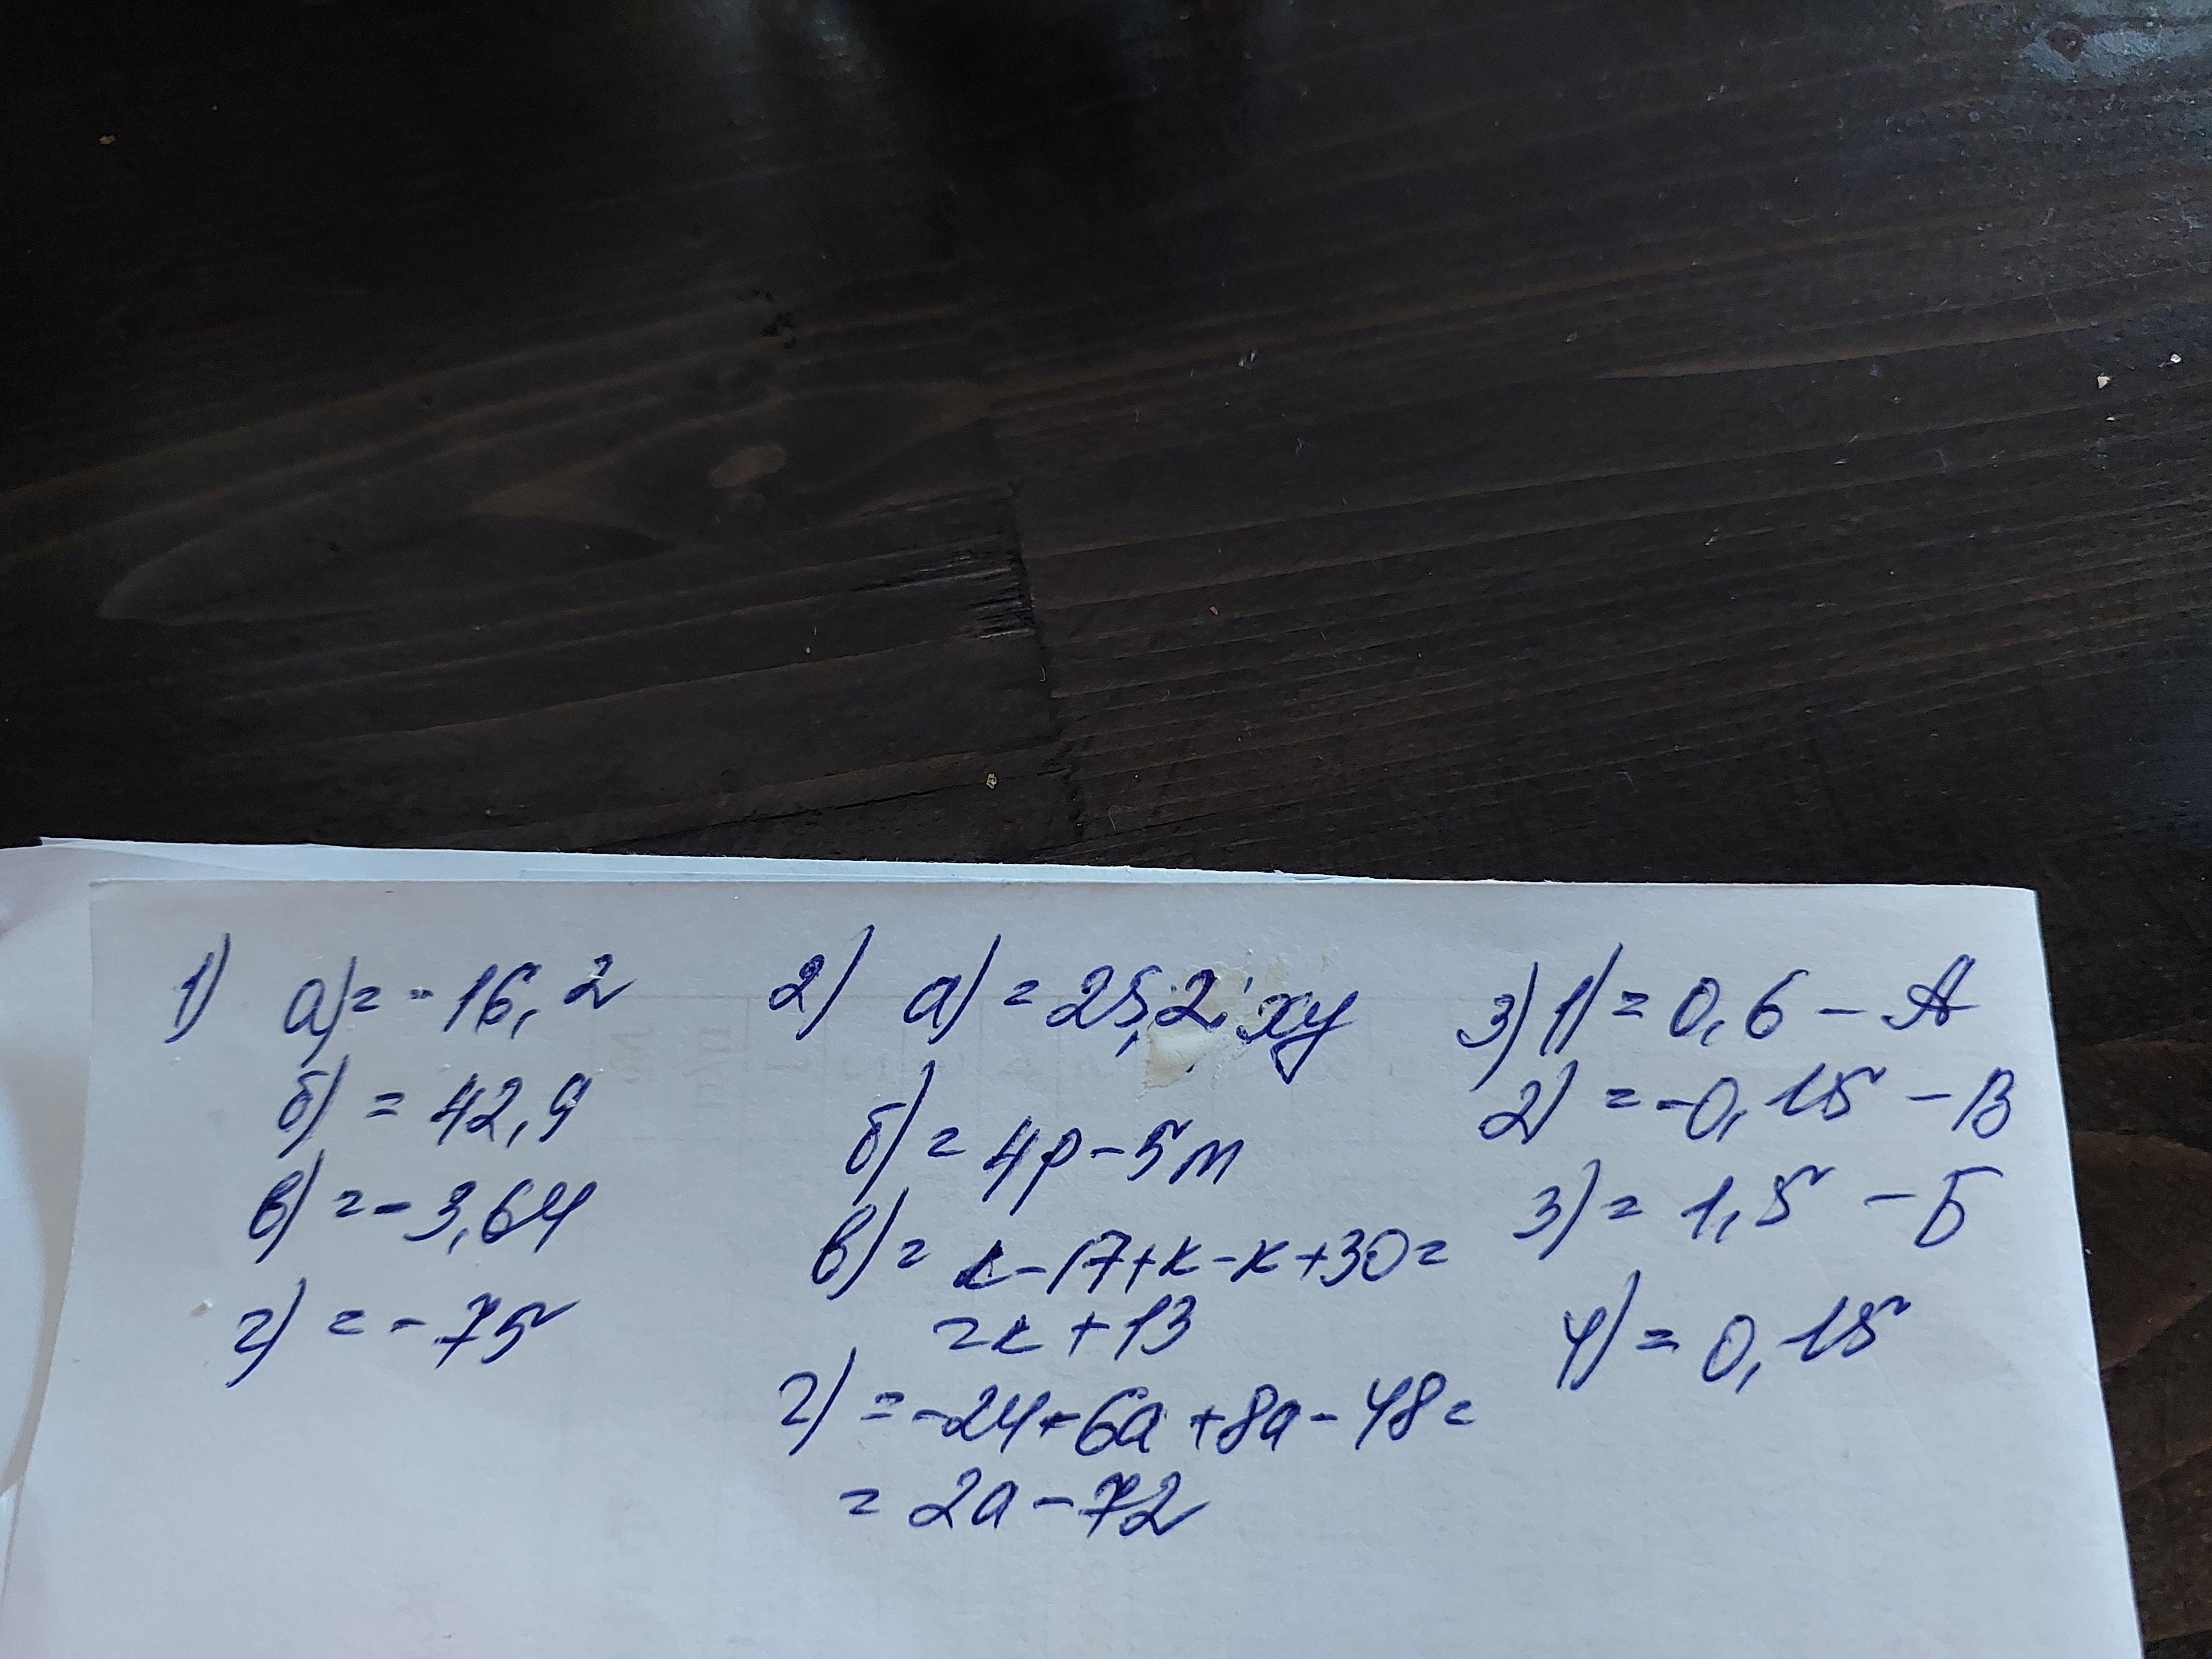 1) а) = -16,2
б) = 42,9
в) = -3,64
г) = -75
2) а) = 25,2 xy
б) = 4p - 5m
в) = k - 17 + k - k + 30 =
= k + 13
г) = -24 - 6a + 8a - 48 =
= 2a - 72
3) 1) = 0,6 - А
2) = -0,15 - В
3) = 1,5 - Б
4) = 0,15